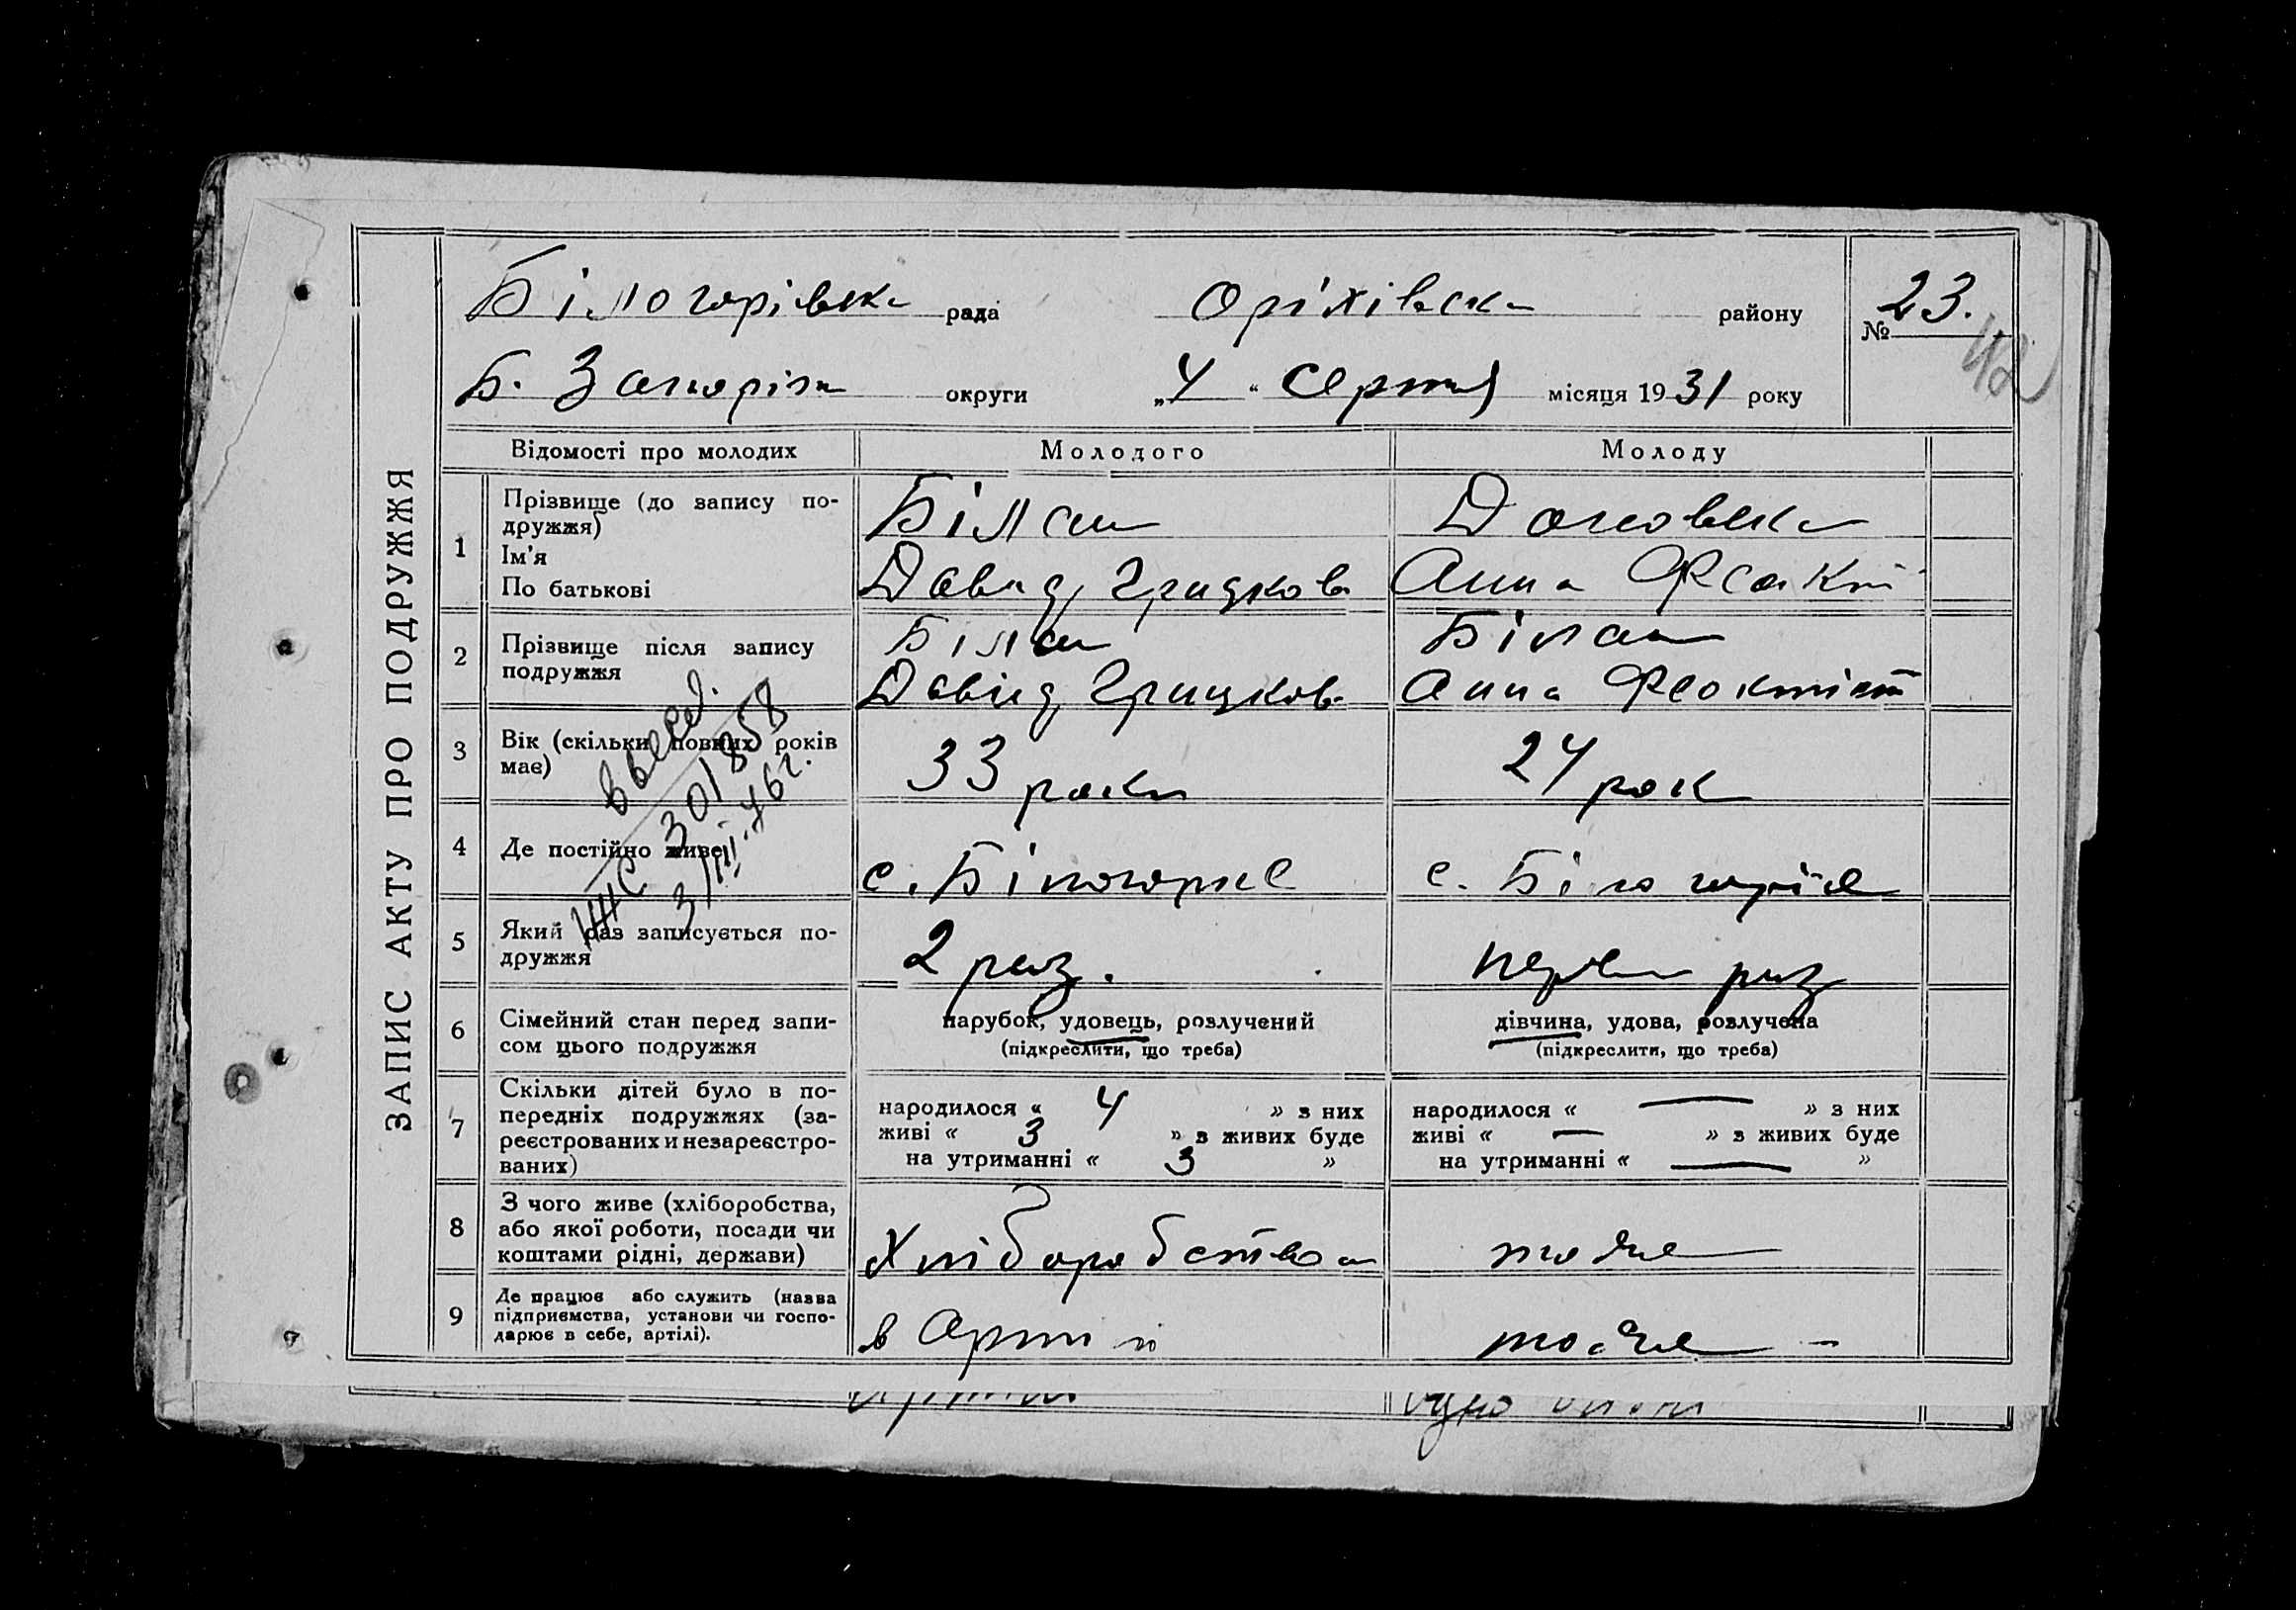 ЗАПИС АКТУ ПРО ПОДРУЖЖЯ
Білогорівска рада Оріхівска району № 23.
Б. Запоріз округи „4“ Серпня місяця 1931 року
Відомості про молодих Молодого Молоду
1 Прізвище (до запису по-
дружжя)
Ім'я
По батькові
Білаш
Давид Грицков
Анна Феокт
2 Прізвище після запису
подружжя
Білаш
Давід Грицков
Білаш
Анна Феоктіст
3 Вік (скільки повних років
має)
33 роки
24 рок
4 Де постійно живе
с. Білогорїє
с. Білогорїє
5 Який раз записується по-
дружжя
2 раз.
перви раз
6 Сімейний стан перед запи-
сом цього подружжя
парубок, удовець, розлучений
(підкреслити, що треба)
дівчина, удова, розлучена
(підкреслити, що треба)
7 Скільки дітей було в по-
передніх подружжях (за-
реєстрованих и незареєстро-
ваних)
народилося « 4 » з них
живі « 3 » з живих буде
на утриманні « 3 »
народилося « — » з них
живі « — » з живих буде
на утриманні « — »
8 З чого живе (хліборобства,
або якої роботи, посади чи
коштами рідні, держави)
Хліборобства
тоже
9 Де працює або служить (назва
підприємства, установи чи госпо-
дарює в себе, артілі).
в Арт
тоже —
301858